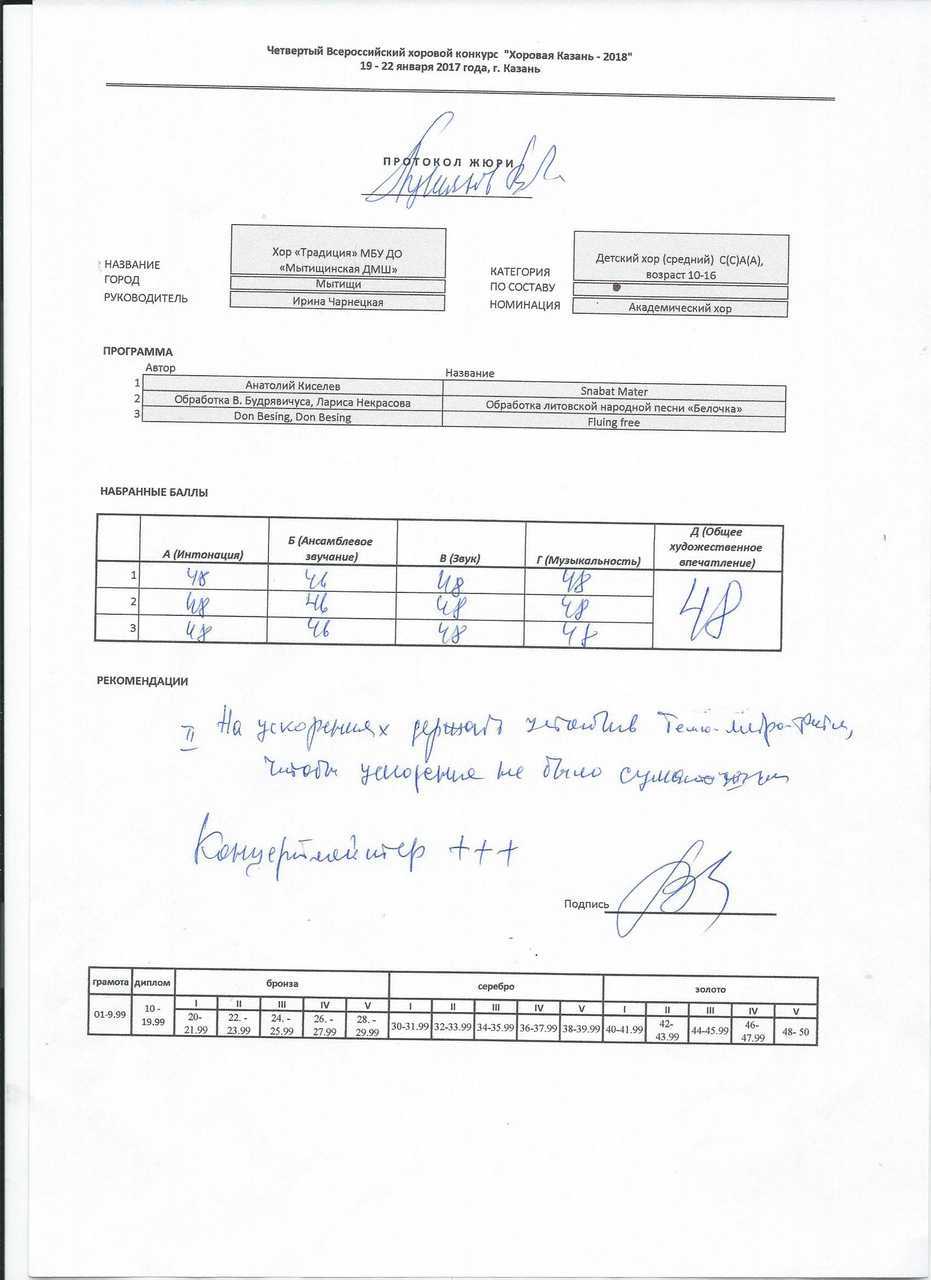 Четвертый Всероссийский хоровой конкурс "Хоровая Казань - 2018"
19 - 22 января 2017 года, г. Казань
ПРОТОКОЛ ЖЮРИ
НАЗВАНИЕ Хор «Традиция» МБУ ДО «Мытищинская ДМШ»
ГОРОД Мытищи
РУКОВОДИТЕЛЬ Ирина Чарнецкая
КАТЕГОРИЯ Детский хор (средний) С(С)А(А), возраст 10-16
ПО СОСТАВУ
НОМИНАЦИЯ Академический хор
ПРОГРАММА
Автор Название
1 Анатолий Киселев Snabat Mater
2 Обработка В. Будрявичуса, Лариса Некрасова Обработка литовской народной песни «Белочка»
3 Don Besing, Don Besing Fluing free
НАБРАННЫЕ БАЛЛЫ
А (Интонация) Б (Ансамблевое звучание) В (Звук) Г (Музыкальность) Д (Общее художественное впечатление)
1 48 46 48 48 48
2 48 46 48 48
3 48 46 48 48
РЕКОМЕНДАЦИИ
II На ускорениях держать
чтобы ускорение не было
Концертмейстер +++
Подпись
грамота диплом бронза серебро золото
I II III IV V I II III IV V I II III IV V
01-9.99 10 - 19.99 20- 21.99 22. - 23.99 24. - 25.99 26. - 27.99 28. - 29.99 30-31.99 32-33.99 34-35.99 36-37.99 38-39.99 40-41.99 42- 43.99 44-45.99 46- 47.99 48- 50